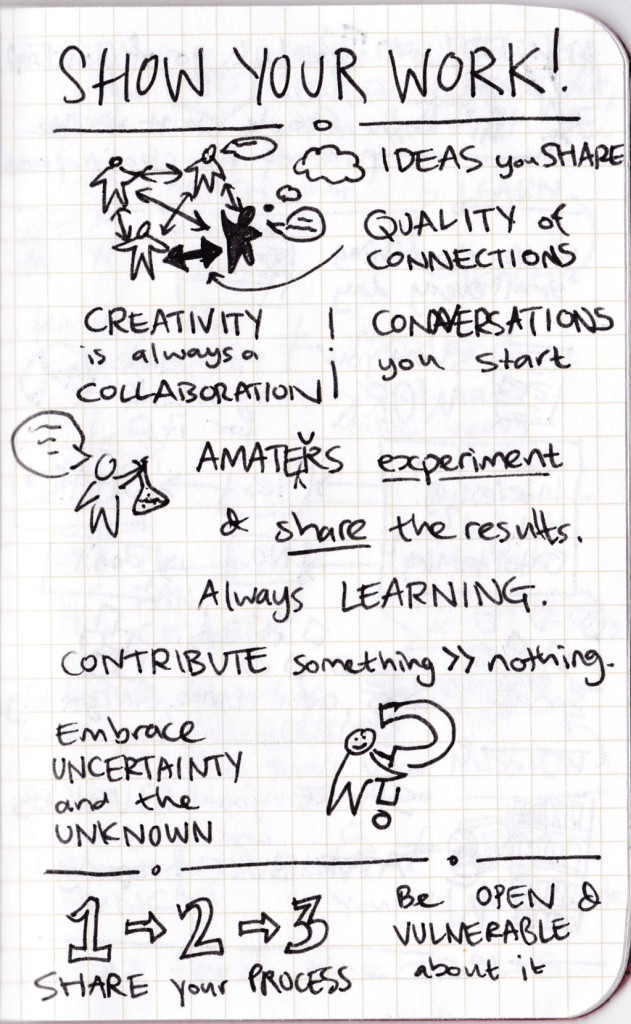 SHOW YOUR WORK!
IDEAS you SHARE
QUALITY of
CONNECTIONS
CREATIVITY
is always a
COLLABORATION
CONVERSATIONS
you start
AMATERS experiment
& share the results.
Always LEARNING.
CONTRIBUTE something >> nothing.
Embrace
UNCERTAINTY
and the
UNKNOWN
1 ⇒ 2 ⇒ 3
SHARE your PROCESS
Be OPEN &
VULNERABLE
about it